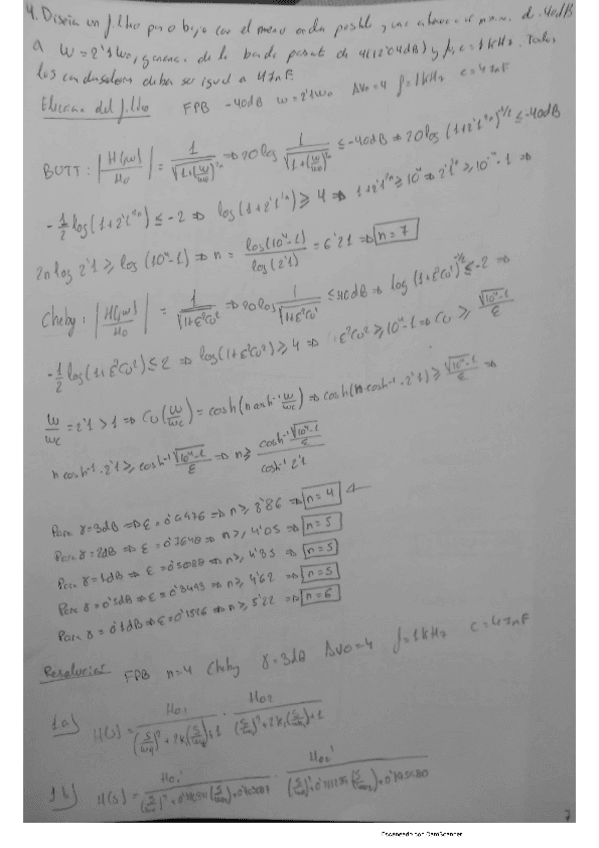 4. Diseña un filtro paso bajo con el menor orden posible y una atenuación mínima de -40dB
a W = 2'1 Wo, ganancia de la banda pasante de 4 (12'04dB) y fc = 1KHz. Todos
los condensadores deben ser igual a 47nF.
Elección del filtro FPB -40dB W = 2'1Wo ΔVo=4 f=1KHz C=47nF
BUTT: |H(jw)/Ho| = 1/√(1+(w/wc)^2n) ⇒ 20log 1/√(1+(w/wc)^2n) ≤ -40dB ⇒ 20log (1+2'1^2n)^-1/2 ≤ -40dB
-1/2 log(1+2'1^2n) ≤ -2 ⇒ log(1+2'1^2n) ≥ 4 ⇒ 1+2'1^2n ≥ 10^4 ⇒ 2'1^2n ≥ 10^4-1 ⇒
2n log 2'1 ≥ log(10^4-1) ⇒ n = log(10^4-1)/log(2'1) = 6'21 ⇒ n=7
Cheby: |H(jw)/Ho| = 1/√(1+ε²Cn²) ⇒ 20log 1/√(1+ε²Cn²) ≤ -40dB ⇒ log(1+ε²Cn²)^-1/2 ≤ -2 ⇒
-1/2 log(1+ε²Cn²) ≤ 2 ⇒ log(1+ε²Cn²) ≥ 4 ⇒ ε²Cn² ≥ 10^4-1 ⇒ Cn ≥ √(10^4-1)/ε
w/wc = 2'1 > 1 ⇒ Cn(w/wc) = cosh(n cosh⁻¹ w/wc) ⇒ cosh(n cosh⁻¹ 2'1) ≥ √(10^4-1)/ε ⇒
n cosh⁻¹ 2'1 ≥ cosh⁻¹ √(10^4-1)/ε ⇒ n ≥ cosh⁻¹ √(10^4-1)/ε / cosh⁻¹ 2'1
Para γ=3dB ⇒ ε = 0'9976 ⇒ n ≥ 3'86 ⇒ n=4
Para γ=2dB ⇒ ε = 0'7648 ⇒ n ≥ 4'05 ⇒ n=5
Para γ=1dB ⇒ ε = 0'5088 ⇒ n ≥ 4'35 ⇒ n=5
Para γ=0'5dB ⇒ ε = 0'3493 ⇒ n ≥ 4'62 ⇒ n=5
Para γ=0'1dB ⇒ ε = 0'1526 ⇒ n ≥ 5'22 ⇒ n=6
Resolución FPB n=4 Cheby γ=3dB ΔVo=4 f=1KHz C=47nF
1a) H(s) = Ho1 / · Ho2 /
1b) H(s) = Ho1' / · Ho2' /
7
Escaneado con CamScanner